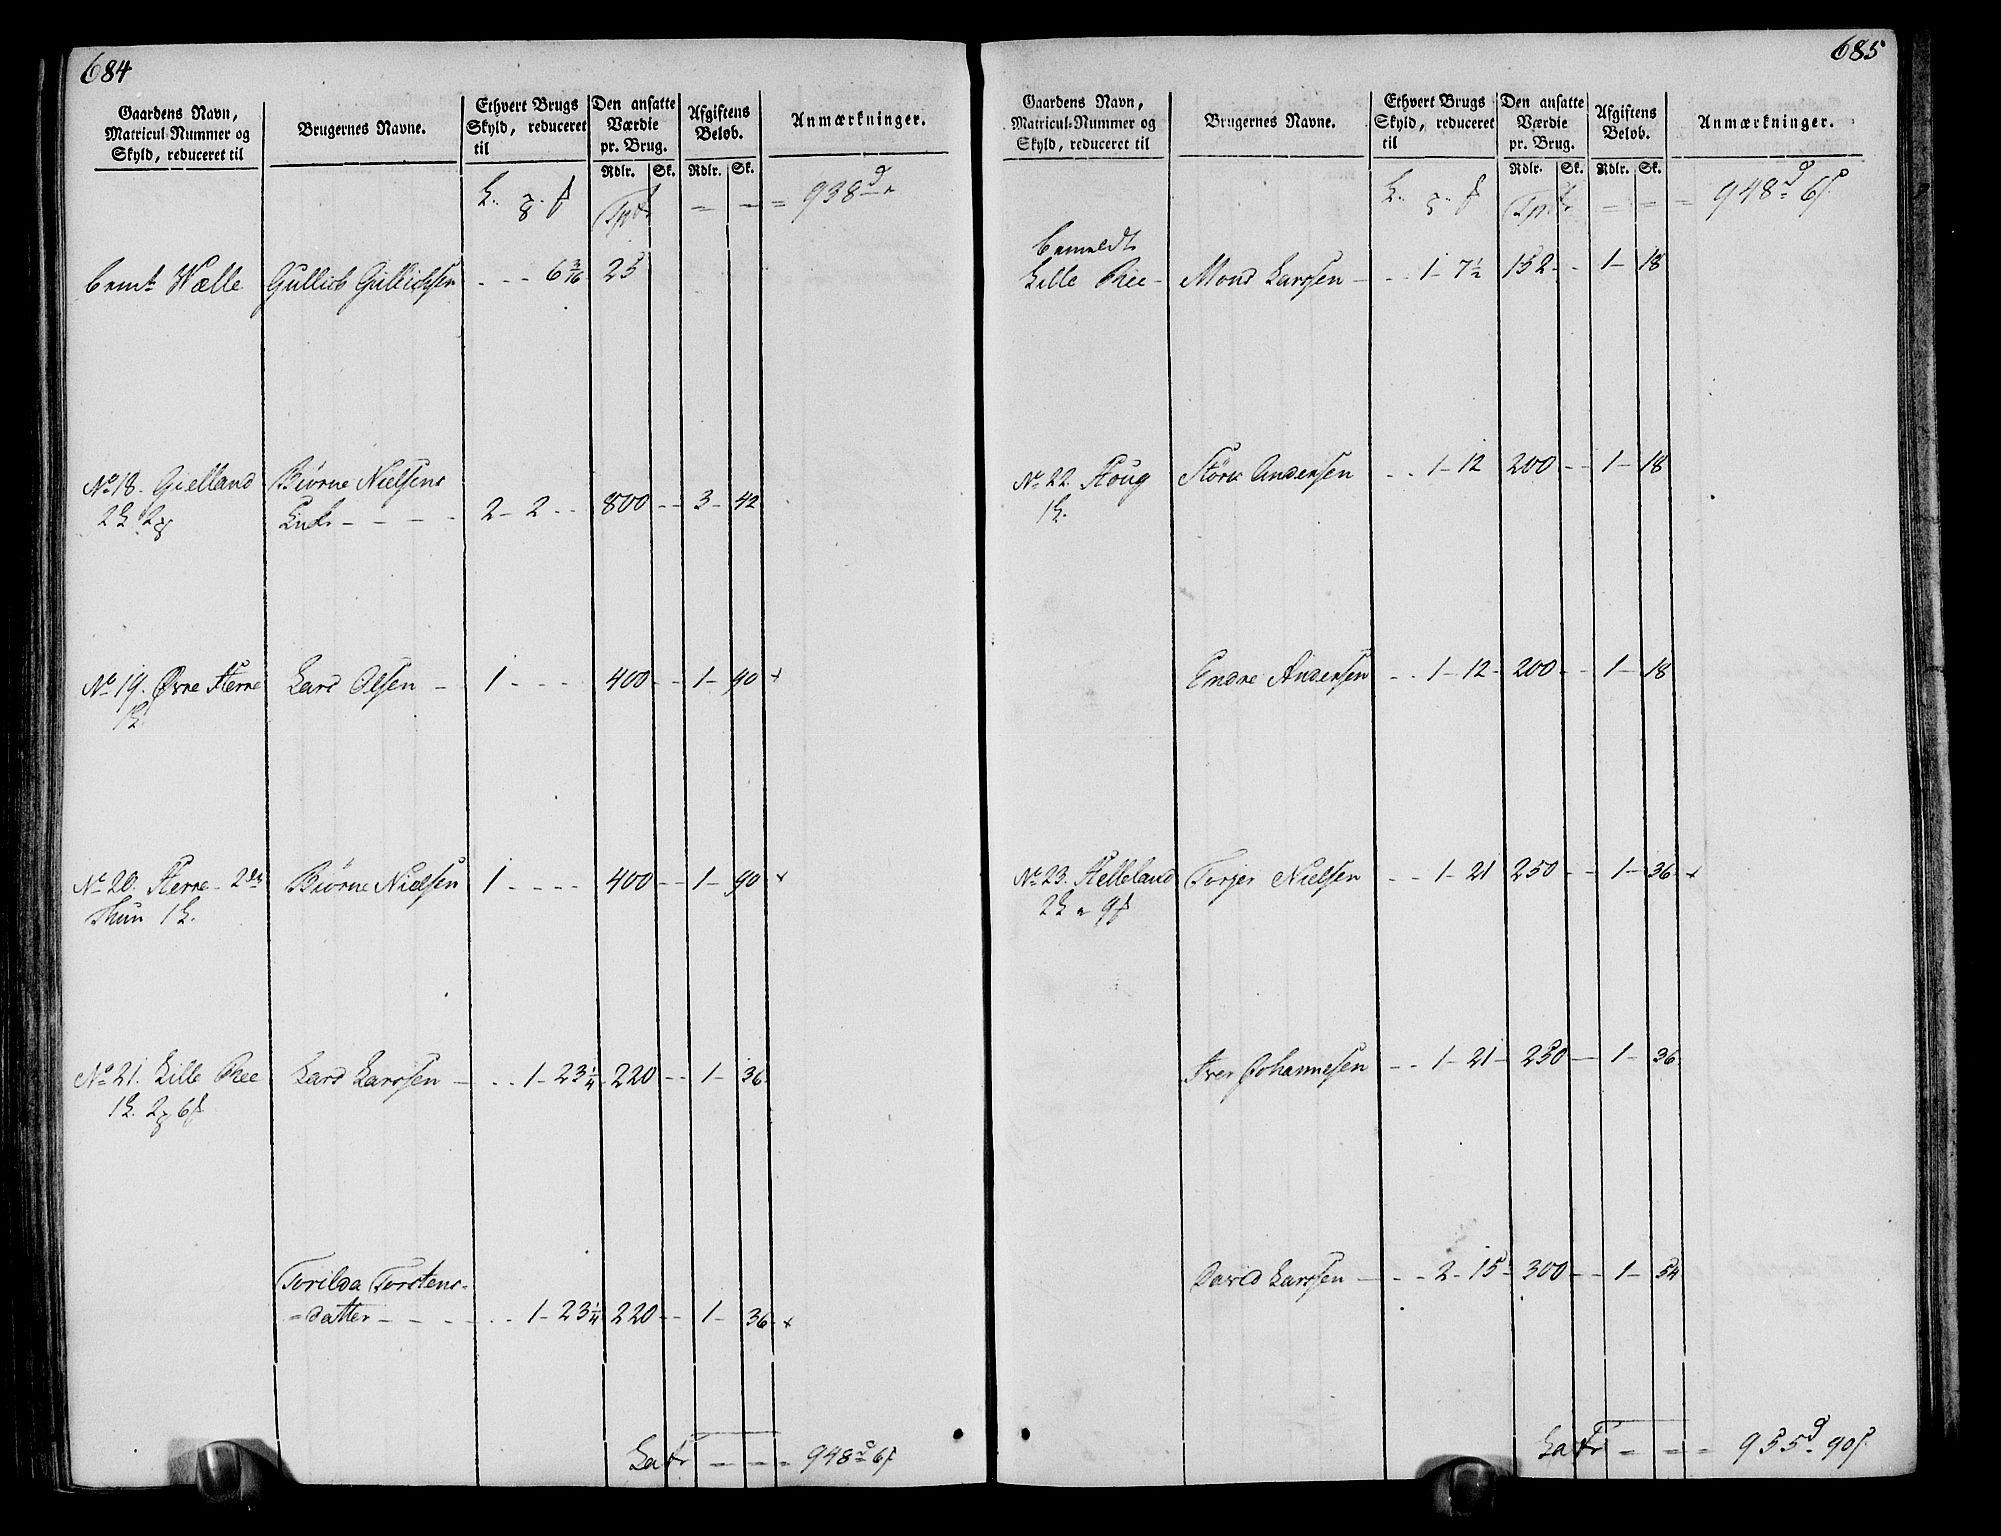 684
Gaardens Navn, Matricul-Nummer og Skyld, reduceret til | Brugernes Navne. | Ethvert Brugs Skyld, reduceret til | Den ansatte Værdie pr. Brug. Rdlr. Sk. | Afgiftens Beløb. Rdlr. Sk. | Anmærkninger.
938
Wælle Gullich Gullichsen - - - 6 3/16 25
No 18. Gielland Biørne Nielsens
Enke - - - - 2 - 2 - - 800 - - 3 - 42
No 19. Øvre Lars Olsen - 1 - - - 400 - - 1 - 90 +
No 20. Biørne Nielsen 1 - - - - 400 - - 1 - 90 +
No 21. Lille Ree Lars Larssen - - - 1 - 23 1/4 220 - - 1 - 36
Torilda Torstens-
=datter - - - - - - 1 - 23 1/4 220 - - 1 - 36 +
Latr = = = 948 6
685
Gaardens Navn, Matricul-Nummer og Skyld, reduceret til | Brugernes Navne. | Ethvert Brugs Skyld, reduceret til | Den ansatte Værdie pr. Brug. Rdlr. Sk. | Afgiftens Beløb. Rdlr. Sk. | Anmærkninger.
948 6
bemeldt
Lille Ree - Mons Larssen - - - 1 - 7 1/2 152 - - 1 - 18
No 22. Houg Andersen - - 1 - 12 200 - - 1 - 18
Endre Andersen - - 1 - 12 - 200 - - 1 - 18
No 23. Helleland Torjer Nielsen - - 1 - 21 250 - - 1 - 36 +
Iver Johannesen - - 1 - 21 - 250 - - 1 - 36
David Larssen - - - 2 - 15 - 300 - - 1 - 54
Latr = = = 955 90